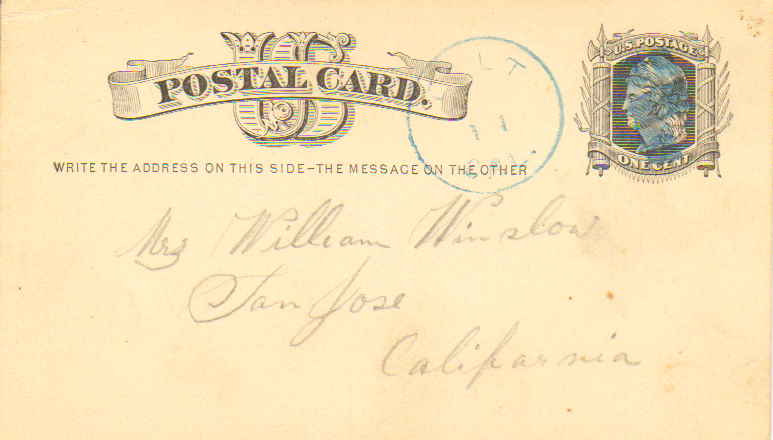 US
POSTAL CARD.
U.S. POSTAGE
ONE CENT
WRITE THE ADDRESS ON THIS SIDE–THE MESSAGE ON THE OTHER
Mrs William Winslow
San Jose
California